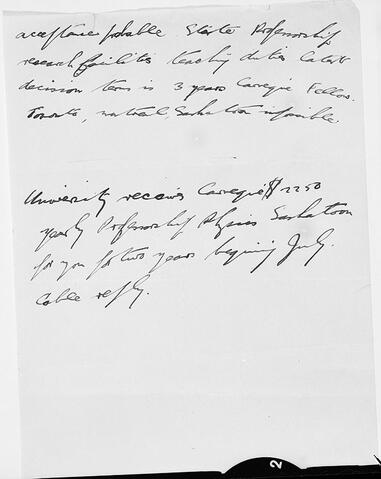 acceptance probable State Professorship
research facilities teaching duties latest
decision terms is 3 years Carnegie Fellow.
Toronto, Montreal, Saskatoon impossible.
University receives Carnegie $2250
yearly Professorship Physics Saskatoon
for you for two years begining July.
Cable reply.
2